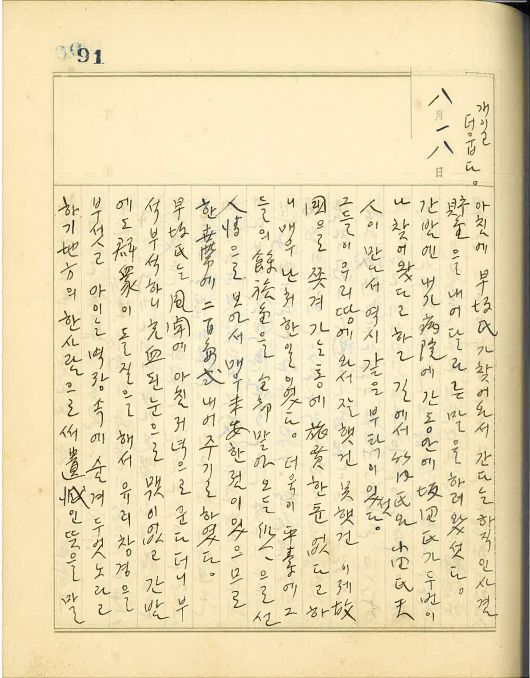 91
八月一八日
개이고
더웁다。
아침에 早坂氏가 찾어와서 간다는 하직인사 겸
貯金을 내어달라른 말을 하려 왔섯다。
간밤엔 내가 病院에 간동안에 坂田氏가 두번이
나 찾어왔다고 하고 길에서 竹氏와 小田氏夫
人이 만나서 역시 같은 부탁이 있섯다。
그들이 우리땅에 와서 잘했건 못했건 이제 故
國으로 쫓겨가는 통에 旅費한푼 없다고 하
니 매우 난처한 일이였다。더욱이 平素에 그
들의 貯金을 맡아오든 으로선
人情으로 보아서 매우 未安한 점이 있으므로
한 에 二百円式 내어주기로 하였다。
早坂氏는 風聞에 아침저녁으로 군다더니 부
석부석하니 充血된 눈으로 맺이없고 간밤
에도 群衆이 돌질을 해서 유리창경을
부섯고 아이는 벽장속에 숨겨두엇노라고
하기 地方의 한사람으로써 遺憾인 뜻을 말